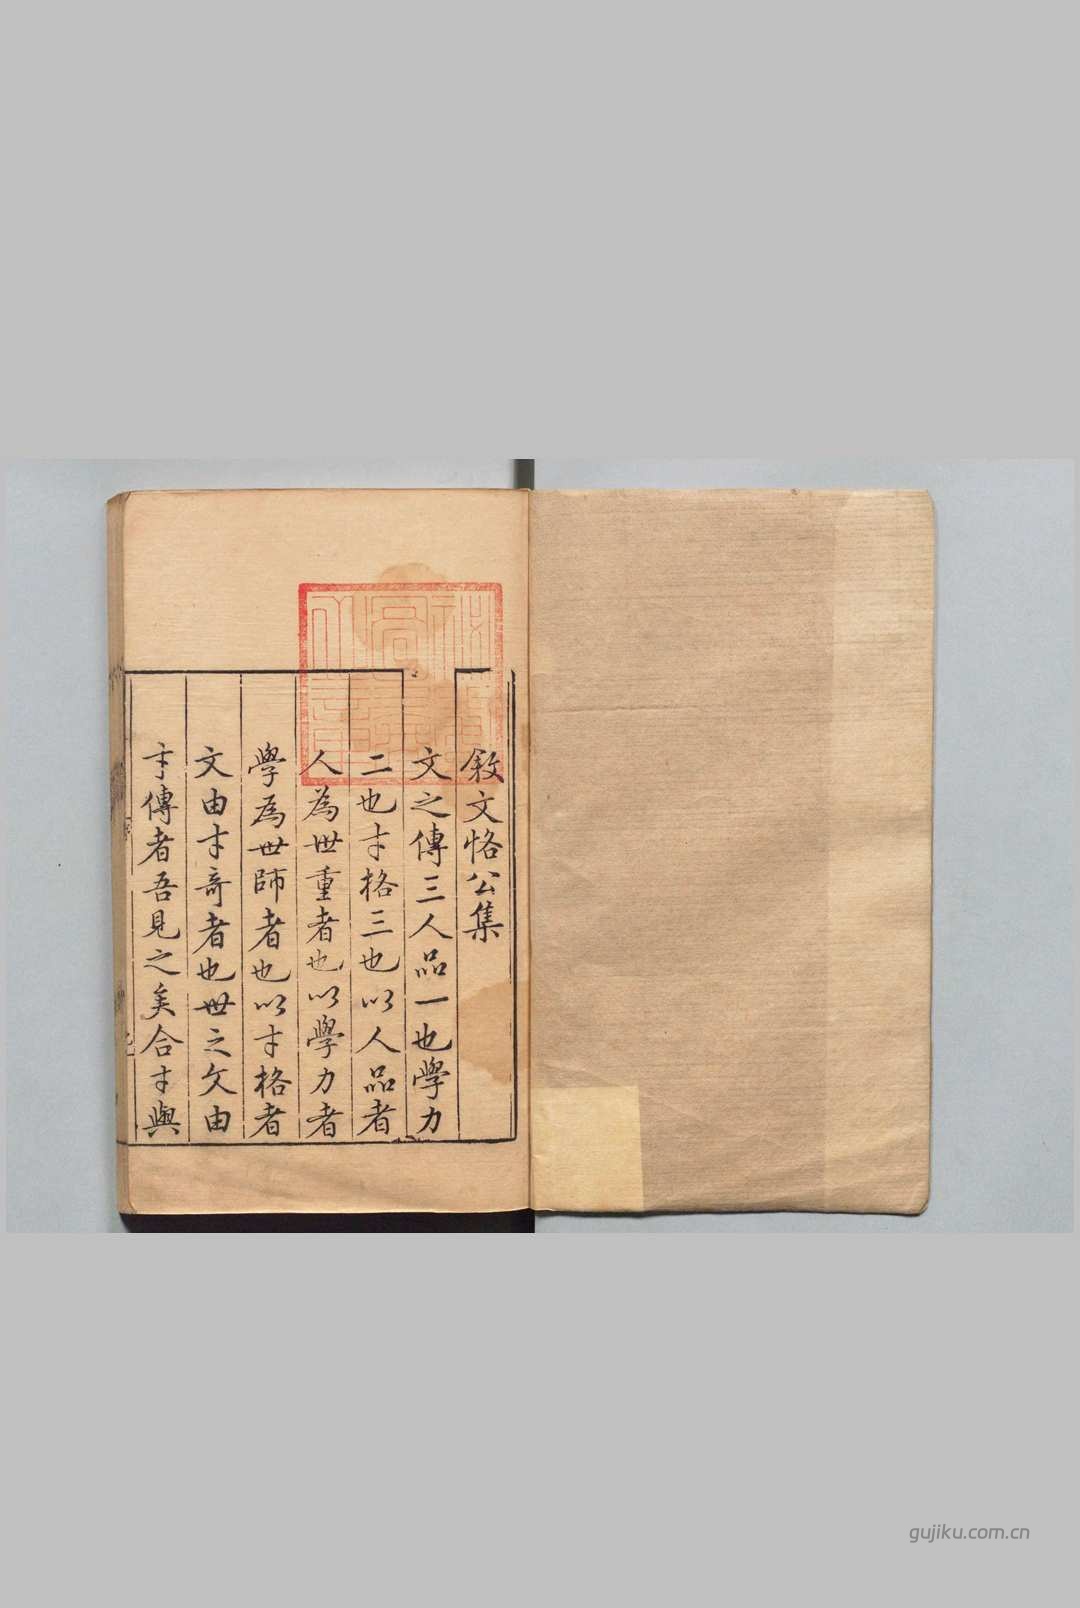 敘文恪公集
文之傳三人品一也學力
二也才格三也以人品者
人為世重者也以學力者
學為世師者也以才格者
文由才奇者也世之文由
才傳者吾見之矣合才與
gujiku.com.cn